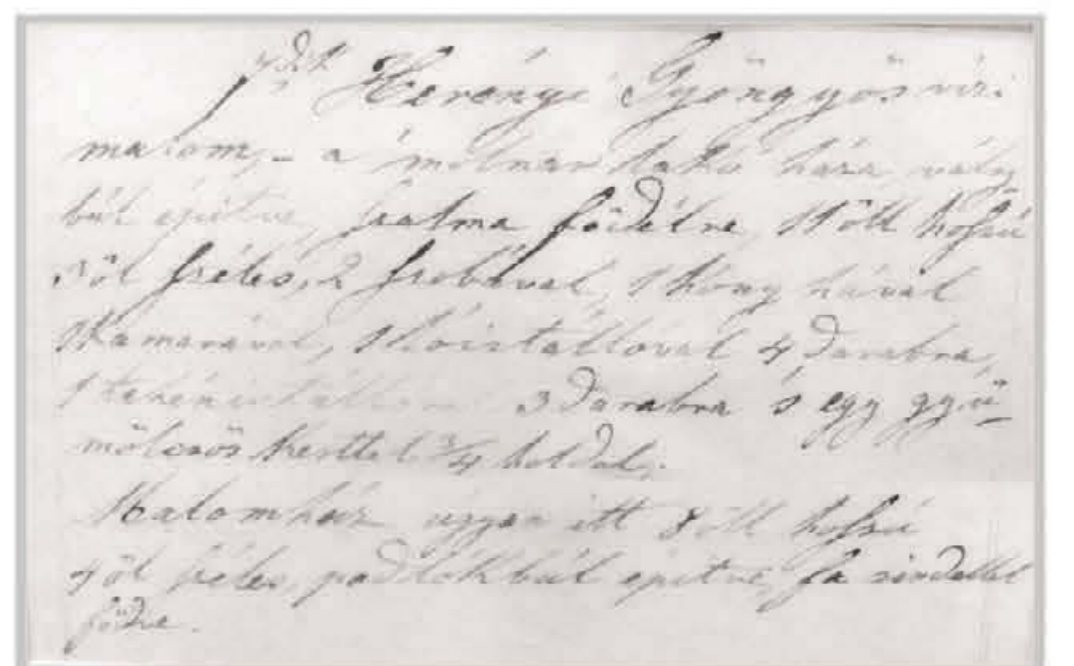 7dik Herényi Gyöngyös vizi
malom,- a molnár lakó háza vály
búl építve, szalma födélre, 11 öll hoszú
3 öl széles, 2 szobával, 1 kony hával
1 kamarával, 1 lóistállóval 4 darabra,
1 tehénistálló 3 darabra s egy gyü
mölcsös kerttel 3/4 holdal,.
Malomház ugyan itt 8 öll hoszú
4 öl széles, padlókbúl építve, fa sindellel
födve.